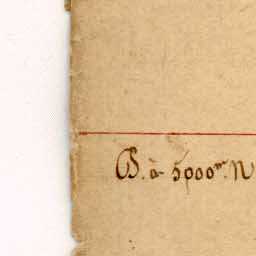 B. à 5000m. N